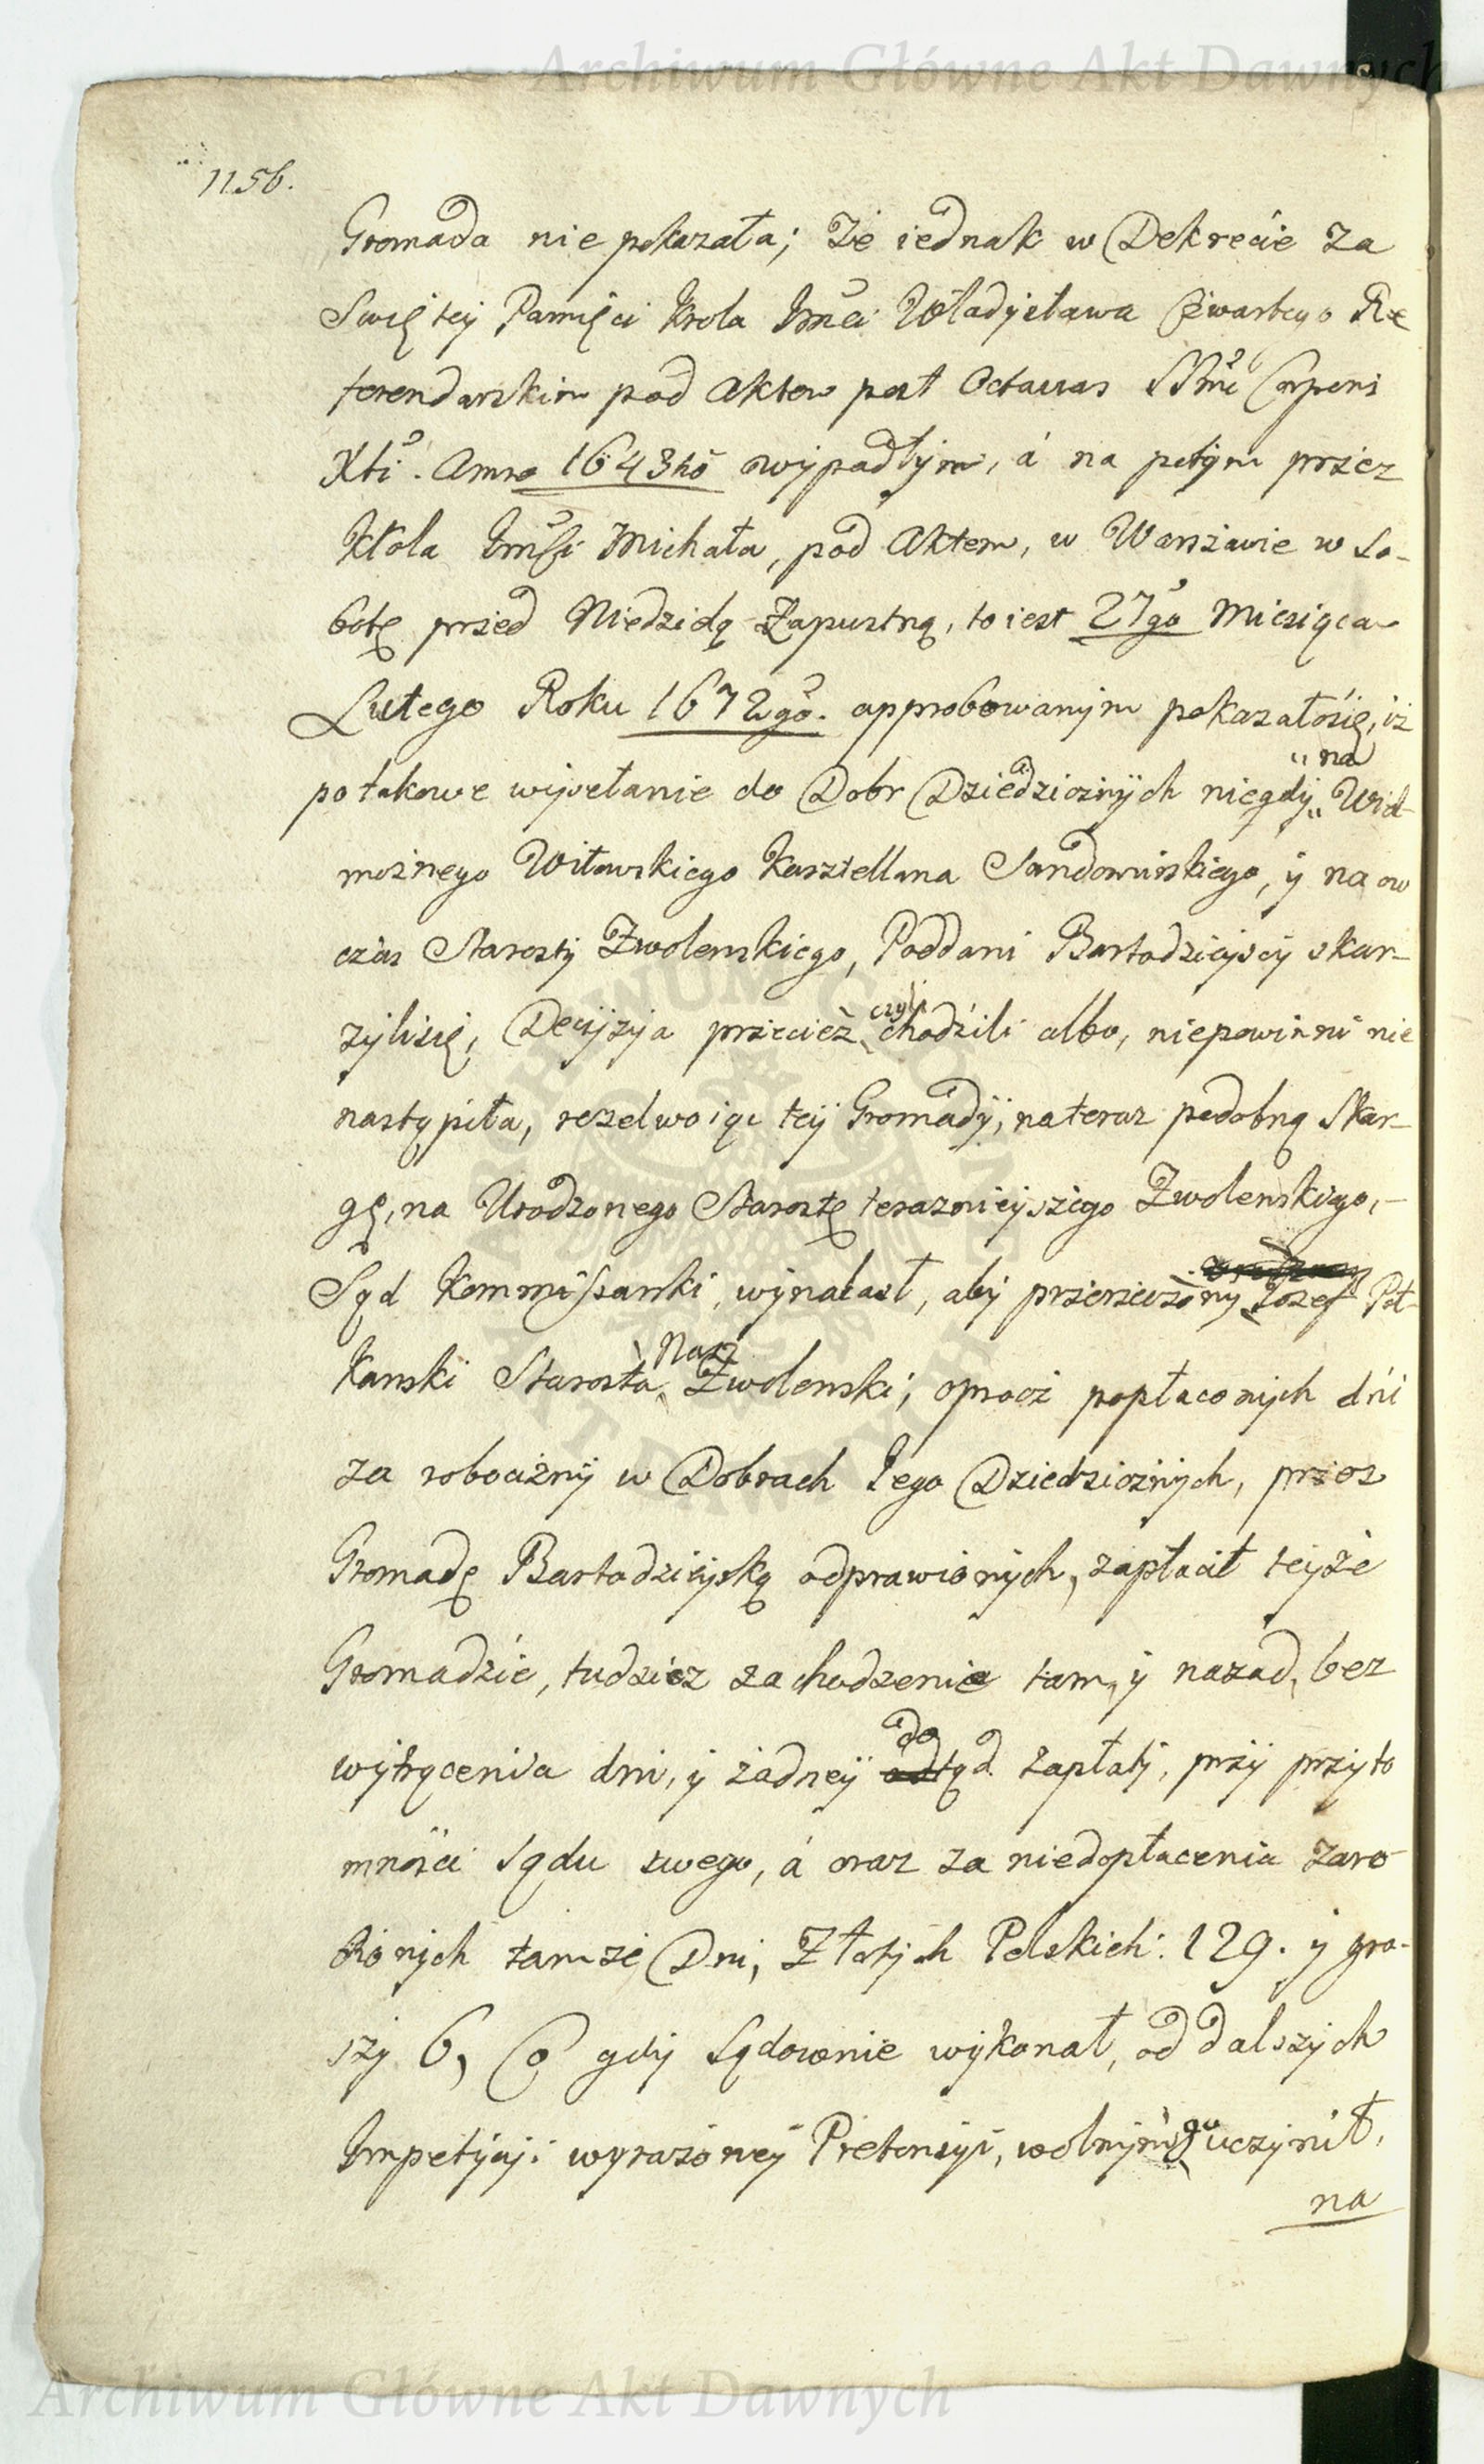 Archiwum Główne Akt Dawnych
1156.
Gromada nie pokazała; Że iednak w Dekrecie za
Swiętey Pamięci Krola Jmći Władysława Czwartego Re
ferendarskim pod Aktem post Octavas SSmi Corporis
Xti. Anno 1643tio wypadłym, á na potym przez
Krola Jmści Michała, pod Aktem, w Warszawie w So-
botę przed Niedzielą Zapustną, to iest 27go Miesiąca
Lutego Roku 1672go. approbowanym pokazałosię, iż
na
po takowe wysełanie do Dobr Dziedzicznych niegdy Wiel-
możnego Witowskiego Kasztellana Sandomirskiego, y na ow
czas Starosty Zwolenskiego, Poddani Bartodzieyscy skar-
czyli
żylisię, Decyzyja przecież chodzili albo, niepowinni nie
nastąpiła, rezolwoiąc tey Gromady, nateraz podobną Skar-
gę, na Urodzonego Starostę teraznieyszego Zwolenskiego,-
Sąd Kommissarski, wynalazł, aby przerzeczony Jozef Pot-
Nasz
kanski Starosta Zwolenski, oprocz popłaconych dni
za robocizny w Dobrach Jego Dziedzicznych, przez
Gromadę Bartodzieyską odprawionych, zapłacił teyże
Gromadzie, tudziesz za chodzenie tam, y nazad, bez
do
wytrącenia dni, y żadney odtąd zapłaty, przy przyto
mności Sądu swego, á oraz za niedopłacenia zaro-
bionych tamże Dni, Złotych Polskich: 129. y gro-
szy 6, Co gdy Sądownie wykonał, od dalszych
go
Impetycyi wyrażoney Pretensyi, wolnym uczynił,
na
Archiwum Główne Akt Dawnych